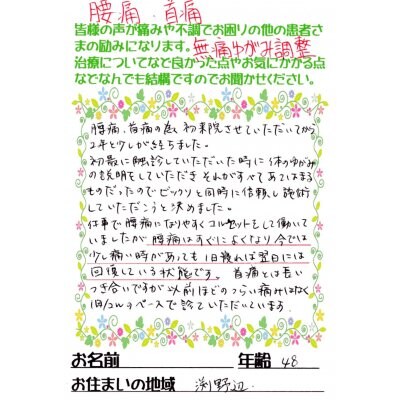 腰痛 首痛
皆様の声が痛みや不調でお困りの他の患者さ
まの励みになります。無痛ゆがみ調整
治療についてなど良かった点やお気にかかる点
などなんでも結構ですのでお聞かせください。
腰痛、首痛の為、初来院させていただいてから
2年と少しがたちました。
初最に触診していただいた時に体のゆがみ
の説明をしていただき それがすべてあてはまる
ものだったのでビックリと同時に信頼し施術
していただこうと決めました。
仕事で腰痛になりやすくコルセットをして働いて
いましたが 腰痛はすぐによくなり今では
少し痛い時があっても1日寝れば翌日には
回復している状態です。 首痛とは長い
つき合いですが以前ほどのつらい痛みはなく
1回/2wのペースで診ていただいています。
お名前 年齢 48
お住まいの地域 渕野辺